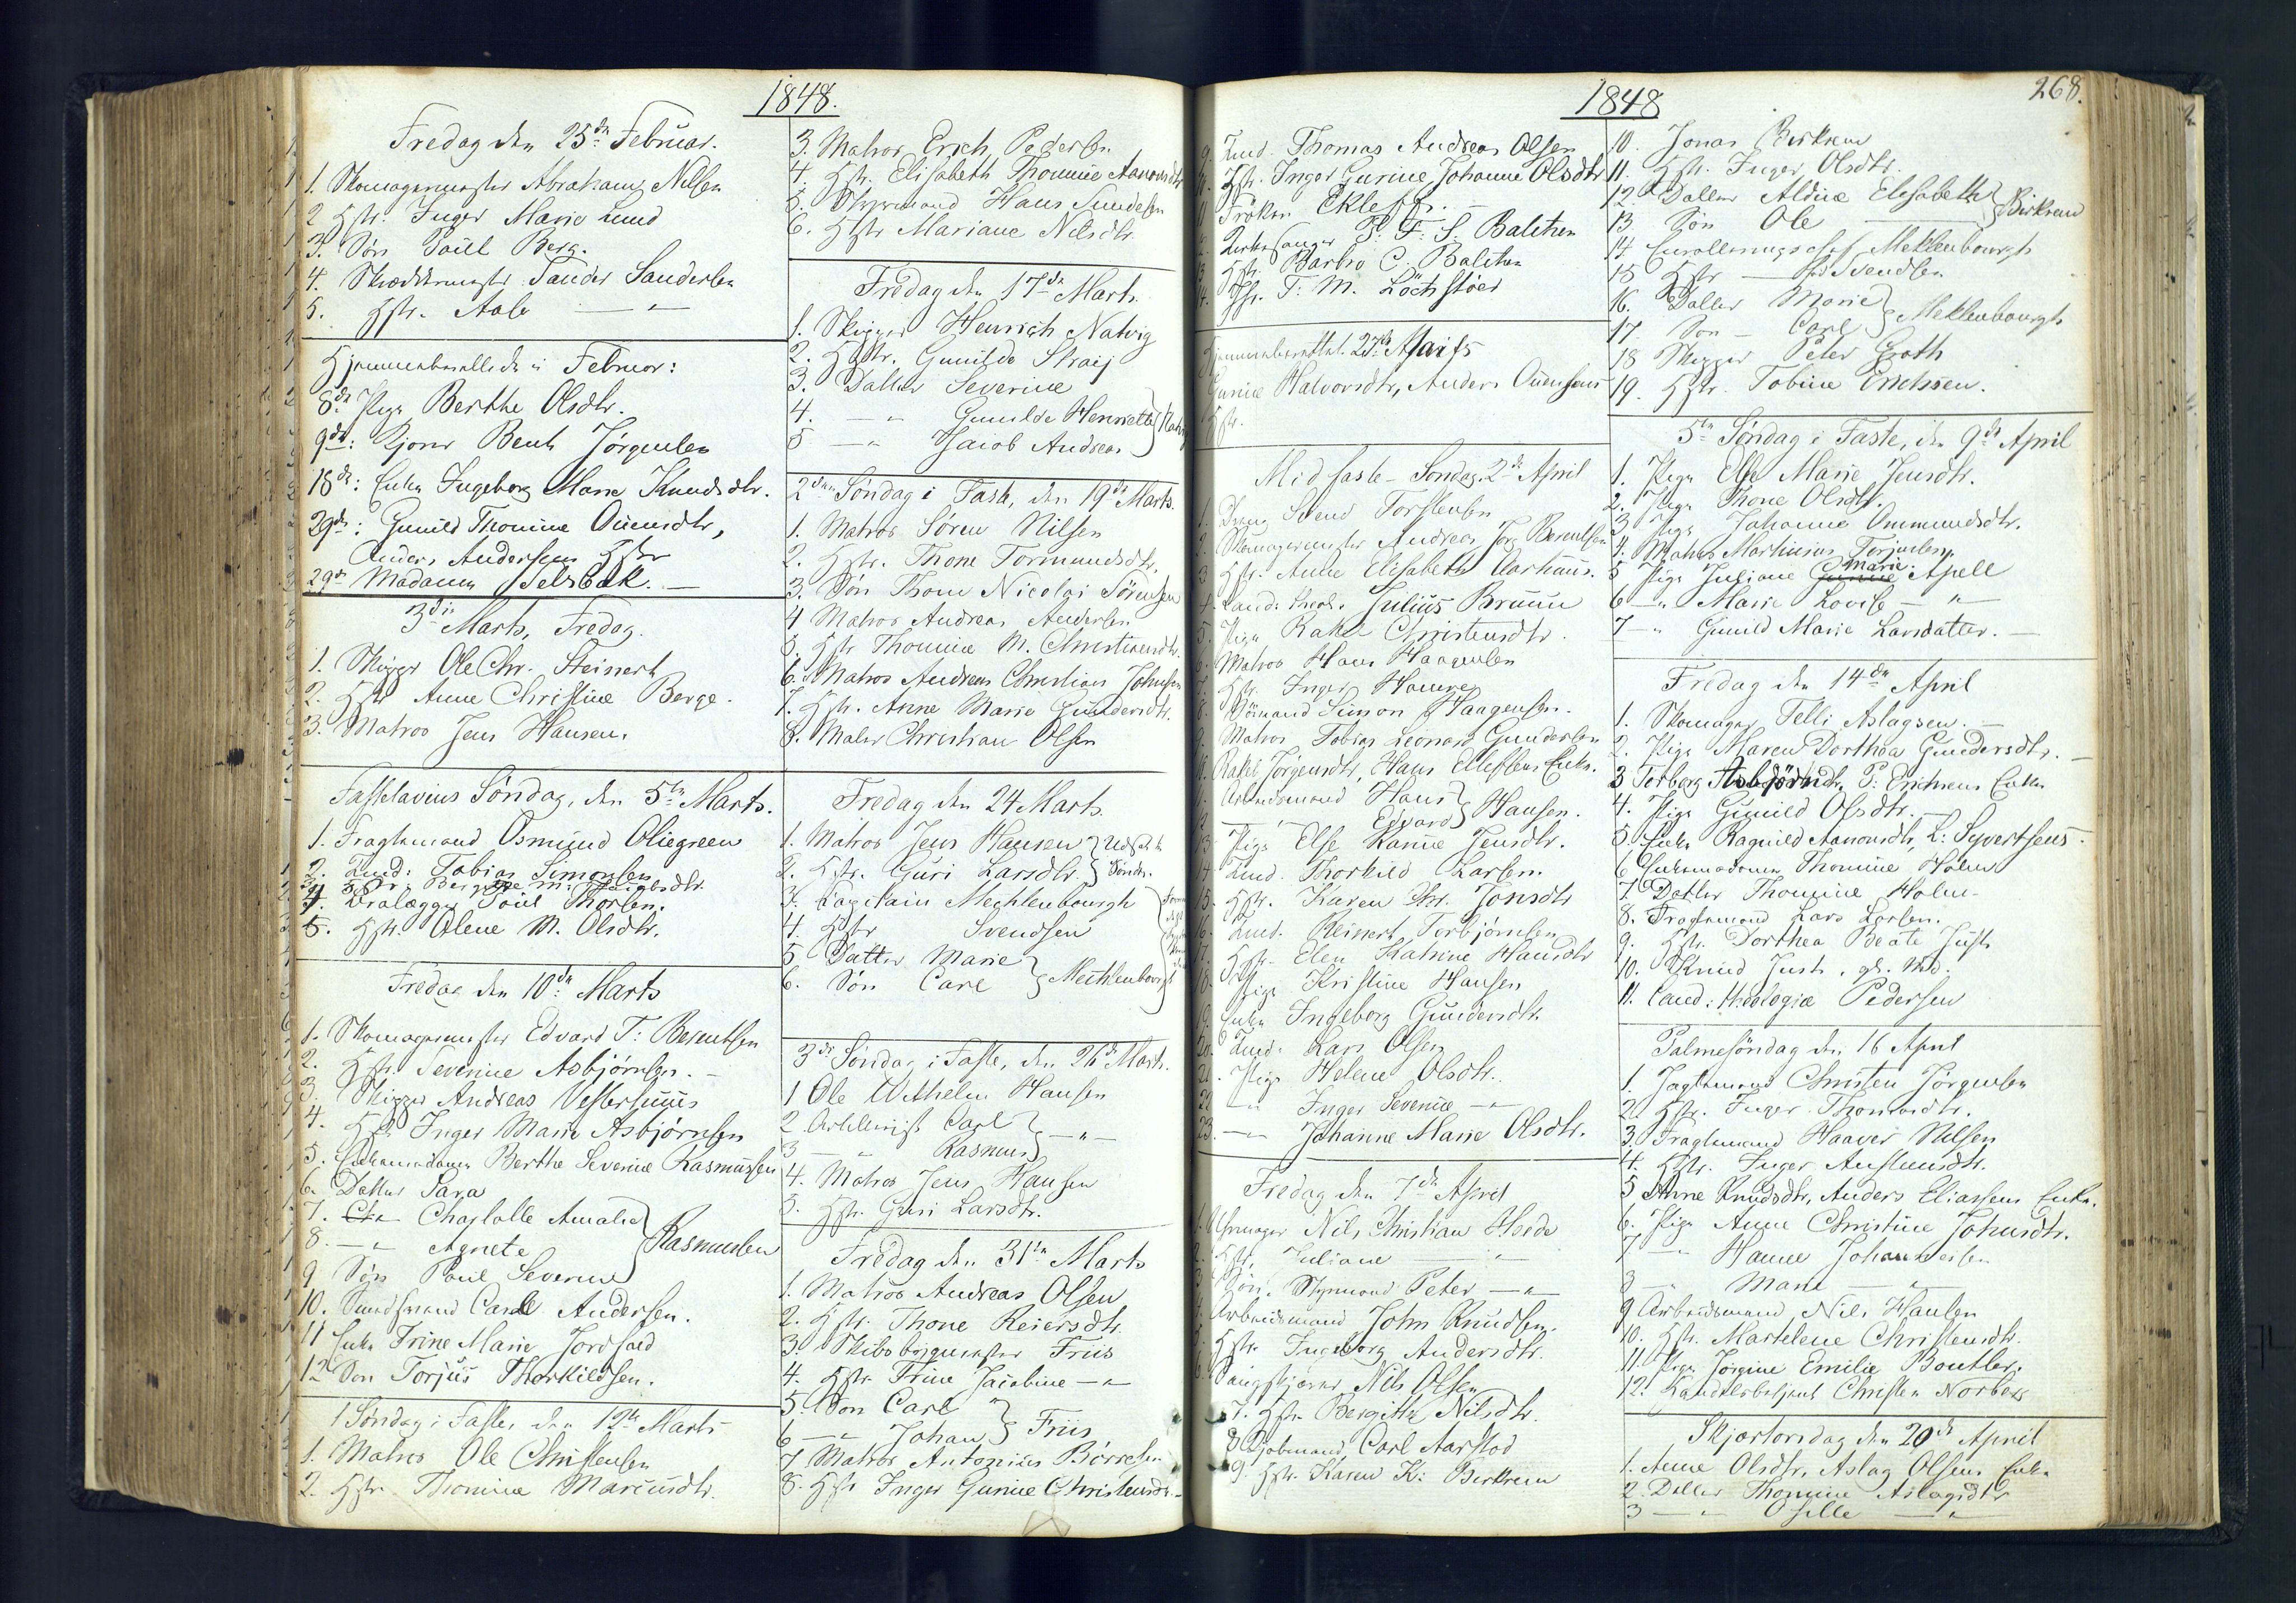 1848.
Fredag den 25de Februar.
1. Skomagermester Abraham Nilsen
2 Hstr. Inger Marie Lund
3. Søn Pouel Berg.
4. Skreddermester Sander Sandersen
5. Hstr. Aase — " —
Hjemmeberettede i Februar:
8de Pige Berthe Olsdtr.
9de: Bent Jørgensen
18de: Enke Ingeborg Marie Knudsdtr.
29de: Gunild Thomine Ouensdtr,
Anders Andersens Hstr
29de Madamm Selsbak. —
3die Marts, Fredag.
1. Skipper Ole Chr. Steinert
2. Hstr Anne Christine Berge.
3. Matros Jens Hansen.
Fastelavns Søndag, den 5te Marts.
1. Fragtemand Osmund Oliegreen
2. Lind: Tobias Simonsen
4. Pouel Thorsen.
5. Hstr. Olene M. Olsdtr.
Fredag den 10de Marts
1. Skomagermester Edvard T: Berentsen
2. Hstr. Severine Asbjørnsen. —
3. Skipper Andreas Vestersuus
4. Hstr Inger Marie Asbjørnsen
5. Enkemadamm Berthe Severine Rasmussen
6. Datter Sara
7. Charlotte Amalie
8. — " Agnete } Rasmussen
9 Søn Pouel Severin
10. Carl Andersen.
11 Enke Trine Marie Jordfald
12 Søn Torjus Thorkildsen.
1 Søndag i Faste, den 12te Marts
1. Matros Ole Christensen
2. Hstr. Thomine Marcusdtr.
3. Matros Erich Pedersen
4. Hstr. Elisabeth Thomine Aanonsdtr
5. Styrmand Hans Sundesen
6. Hstr Mariane Nilsdtr
Fredag den 17de Marts
1. Skipper Henrich Natvig
2. Hstr. Gunilde Straij
3. Datter Severine
4. — " Gunilde Henriette } Natvig
5 — " Jacob Andreas
2den Søndag i Faste, den 19de Marts.
1. Matros Søren Nilsen
2. Hstr. Thone Tormundsdtr.
3. Søn Thom Nicolai Sörensen
4 Matros Andreas Andersen
5. Hstr Thomine M. Christiansdtr.
6. Matros Andreas Christian Johnsen
7. Hstr. Anne Marie Gundersdtr.
8. Maler Christian Olsen
Fredag den 24 Marts.
1. Matros Jens Hansen
2. Hstr. Guri Larsdtr.
3. Kapitain Mechlenbourgh
4. Hstr Svendsen
5 Datter Marie
6. Søn Carl } Mechlenbourgh
3de Søndag i Faste, den 26de Marts.
1 Ole Wilhelm Hansen
2 Carl
3 — " Rasmus } — " —
4. Matros Jens Hansen
5. Hstr. Guri Larsdtr.
Fredag den 31te Marts
1. Matros Andreas Olsen
2. Hstr. Thone Reiersdtr.
3 Skibsbygmester Friis
4. Hstr Trine Jacobine — "
5. Søn Carl
6 — " Johan } Friis
7 Matros Antonius Börresen
8. Hstr Inger Gunie Christensdtr.
1848
268.
9. Lind. Thomas Andreas Olsen
10. Hstr. Inger Gurine Johanne Olsdtr
11 Frøken Ekleff. —
12. Kirkesanger P. F. S. Balchen
13 Hstr. Barbro C. Balchen
14. Jfr. T. M. Löchstöer
Hjemmeberettet 27de Marts
Gunie Halvorsdtr, Anders Ouensens
Hstr.
Midfaste-Søndag, 2de April
1. Dreng Svend Torstensen
2. Skomagermester Andreas Jørg Berentsen
3 Hstr. Anne Elisabeth Aarhuus.
4. Cand: theol. Julius Bruun
5. Pige Rakel Christensdtr.
6. Matros Hans Haagensen
7. Hstr. Inger Hanne
8. Sømand Simon Haagensen.
9. Matros Tobias Leonard Gundersen
Rakel Jørgensdtr, Hans Ellefsens Enke.
Arbeidsmand Hans
Edvard } Hansen.
13. Pige Else Karine Jensdtr.
14. Lind. Thorkild Larsen.
15. Hstr. Karen Chr. Jonsdtr
16. Lind. Reinert Torbjørnsen
17. Hstr. Elen Katrine Hansdtr
18. Pige Kristine Hansen
19. Enke Ingeborg Gundersdtr.
20. Lind: Lars Olsen
21. Pige Helene Olsdtr.
22 — " Inger Severine — "
23. — " Johanne Marie Olsdtr.
Fredag den 7de April
1. Uhrmager Nils Christian Heede
2. Hstr. Juliane — " —
3. Søn. Styrmand Peter — " —
4. Arbeidsmand John Knudsen.
5. Hstr. Ingeborg Andersdtr.
6. Nils Olsen
7. Hstr. Bergitte Nilsdtr.
8 Carl Aarstod
9. Hstr. Karen K: Birkrem
10. Jonas Birkrem
11. Hstr. Inger Olsdtr.
12. Datter Aldine Elisabeth
13. Søn Ole } Birkrem
14 Enrolleringschef Meklenbourgh
15 Hstr — Svendsen
16. Datter Marie
17. Søn — Carl } Meklenbourgh
18 Skipper Peter Groth
19. Hstr. Tobine Erichsen.
5te Søndag i Faste, den 9de April
1. Pige Else Marie Jensdtr.
2. Pige Thone Olsdtr.
3 Pige Johanne Ommundsdtr.
4. Matros Martinius Torjusen.
5 Pige Juliane Marie Apell
6 — " Marie Lovise — " —
7 — " Gunild Marie Larsdatter. —
Fredag den 14de April
1. Skomager Telli Aslagsen. —
2. Pige Maren Dorthea Gundersdtr. —
3 Torborg Asbjörnsdtr, P: Erichsens Enke
4. Pige Gunild Olsdtr. —
5. Enke Ragnild Aanonsdtr, L: Syvertsens
6 Enkemadamm Thomine Holm
7. Datter Thomine Holm
8. Fragtemand Lars Larsen.
9. Hstr. Dorthea Beate Just
10. Knud Just, gl. Md.
11. Cand: theologiæ Pedersen
Palmesöndag den 16 April
1. Fragtemand Christen Jørgensen
2. Hstr. Inger Thomasdtr.
3. Fragtemand Haaver Nilsen
4. Hstr. Inger Anstensdtr.
5 Anne Knudsdtr, Anders Eliassens Enke.
6. Pige Anne Christine Johnsdtr.
7 — " Hanne Johannesen
8 — " Marie — " —
9 Arbeidsmand Nils Hansen
10. Hstr. Martelene Christensdtr.
11. Pige Jörgine Emilie Boutler.
12. Handelsbetjent Christen Norbek
Skjærtorsdag den 20de April
1. Anne Olsdtr, Aslag Olsens Enke
2. Datter Thomine Aslagsdtr
3 — " Osille — " —